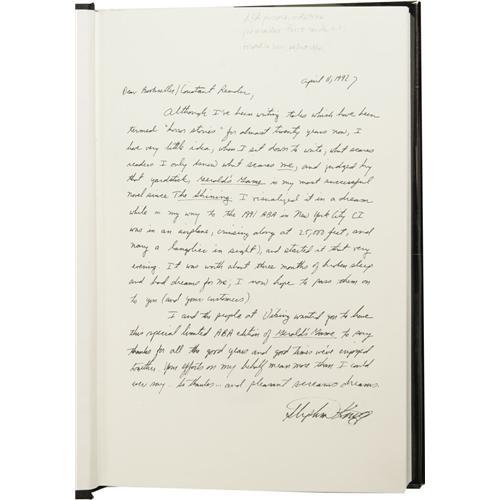 April 11, 1992
Dear Bookseller/Constant Reader,
Although I've been writing tales which have been
termed "horror stories" for almost twenty years now, I
have very little idea, when I sit down to write, what scares
readers. I only know what scares me, and judged by
that yardstick, Gerald's Game is my most successful
novel since The Shining. I visualized it in a dream
while on my way to the 1991 ABA in New York City (I
was in an airplane, cruising along at 25,000 feet, and
nary a langolier in sight), and started it that very
evening. It was worth about three months of broken sleep
and bad dreams for me; I now hope to pass them on
to you (and your customers).
I and the people at Viking wanted you to have
this special limited ABA edition of Gerald's Game to say
thanks for all the good years and good times we've enjoyed
together. Your efforts on my behalf mean more than I could
ever say... so thanks... and pleasant screams dreams.
Stephen King